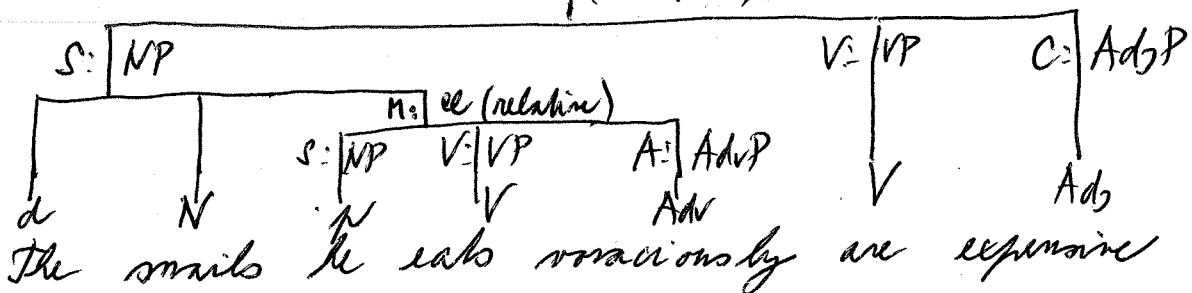 S: NP V: VP C: Adj P
M: cl (relative)
S: NP V: VP A: AdvP
d N N V Adv V Adj
The snails he eats voraciously are expensive